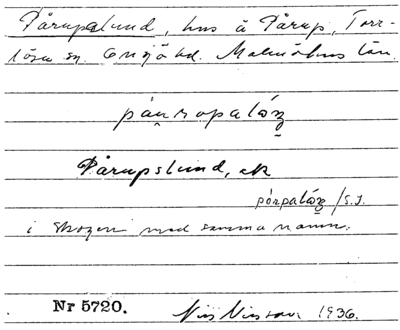 Pårupslund, hus å Pårup, Torr-
lösa sn. Onsjö hd. Malmöhus län.
Pårupslund, ek
/S.J.
i skogen med samma namn.
Nr 5720.
Nils Nilsson 1936.